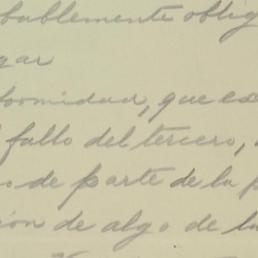 bablemente oblig
gar
formidad, que es
l fallo del tercero,
o de parte de la p
ión de algo de la